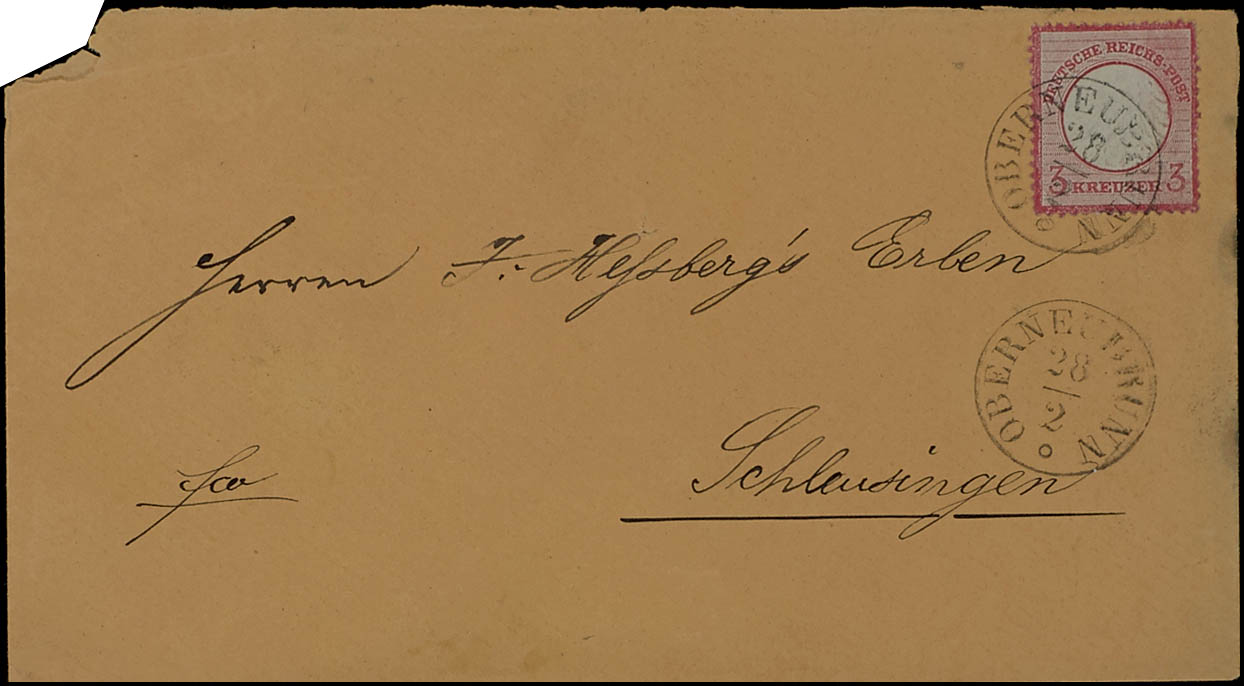 DEUTSCHE REICHS-POST
3 KREUZER 3
OBERNEUBRUNN
28/2
Herren J. Heßberg's Erben
OBERNEUBRUNN
28/2
Schleusingen
fco